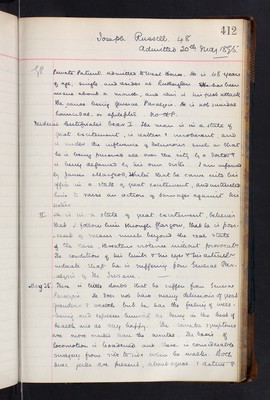 412
Joseph Russell, 48
Admitted 20th May 1895.
Private Patient admitted to West House. He is 48 years
of age, single and resides at Rutherglen. He has been
insane about a month, and this is his first attack
the cause being General Paralysis. He is not suicidal
homicidal, or epileptic.
Medical Certificates I. The man is in a state of
great excitement, is restless & incoherent and
is under the influence of delusions such as that
he is being pursued all over the city by a
is being defamed by his own wife. I am informed
by James Glasgow, that he came into his
office in a state of great excitement, and
him to raise an action of damages against his
II. He is in a state of great excitement believes
that I follow him through Glasgow, that he is
of means much beyond the real state
of the case, threatens violence without provocation
The condition of his limbs & his eyes & his
indicate that he is suffering from General
of the Insane
May 25. There is little doubt that he suffers from General
Paralysis. He does not have many delusions of great
grandeur & wealth but he has the feeling of well
being and expresses himself as being in the best of
health and as very happy. The somatic symptoms
are more marked than the mental. His
locomotion is hindered and there is considerable
swaying from side to side when he walks. Both
knee jerks are present, about equal & active &